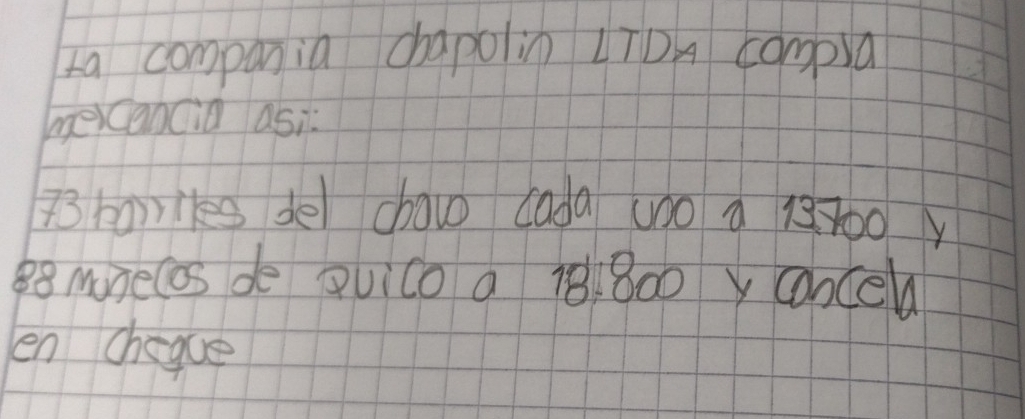 La compania chapolin LTDA compra
mercancia asi:
73 barriles del chavo cada uno a 13.700 y
88 muñecos de Quico a 18.800 y cancela
en cheque